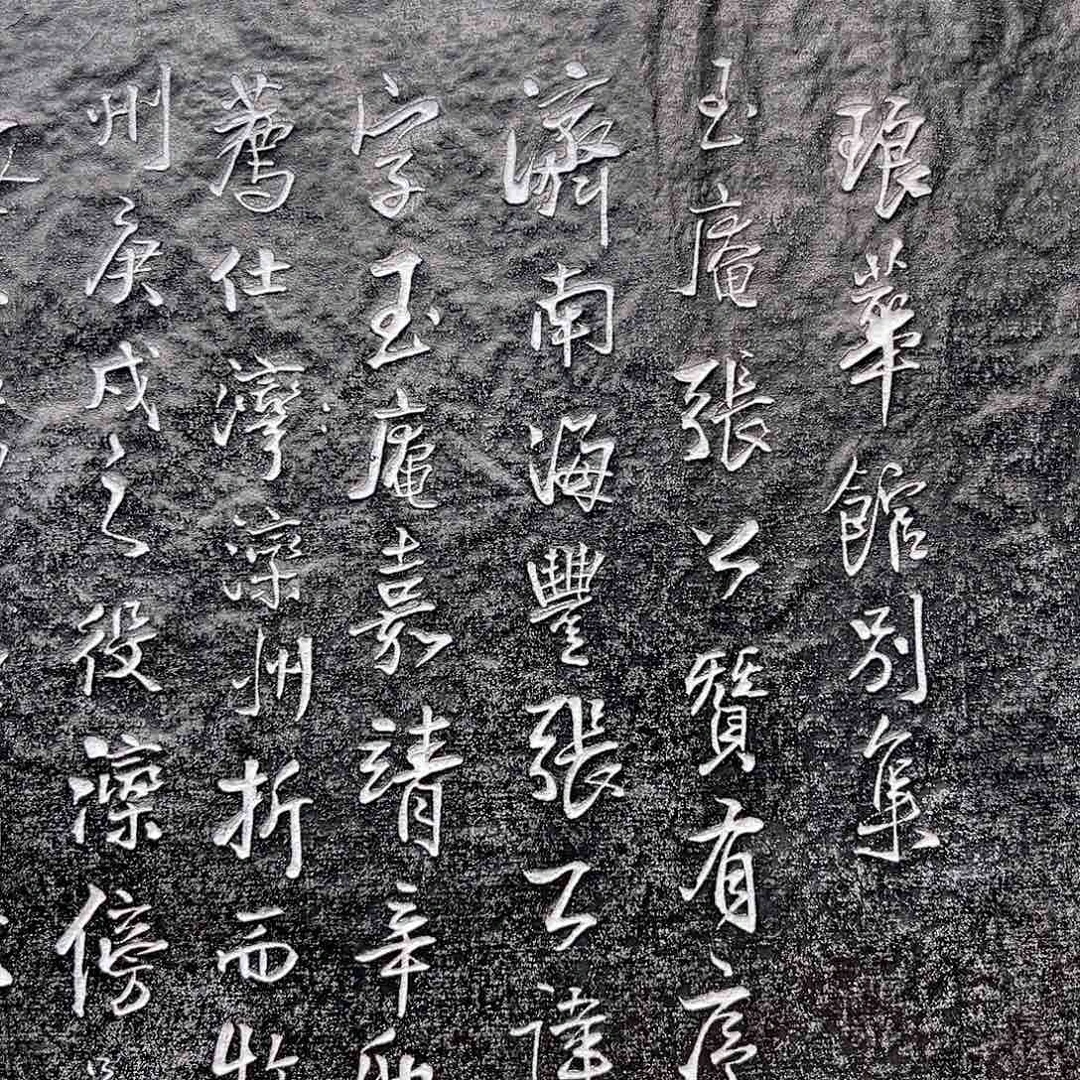 琅華館別集
玉庵張公贊有序
濟南海豐張公諱
字玉庵嘉靖辛酉
薦仕灣灤州折而牧
州庚戌之役凜傍